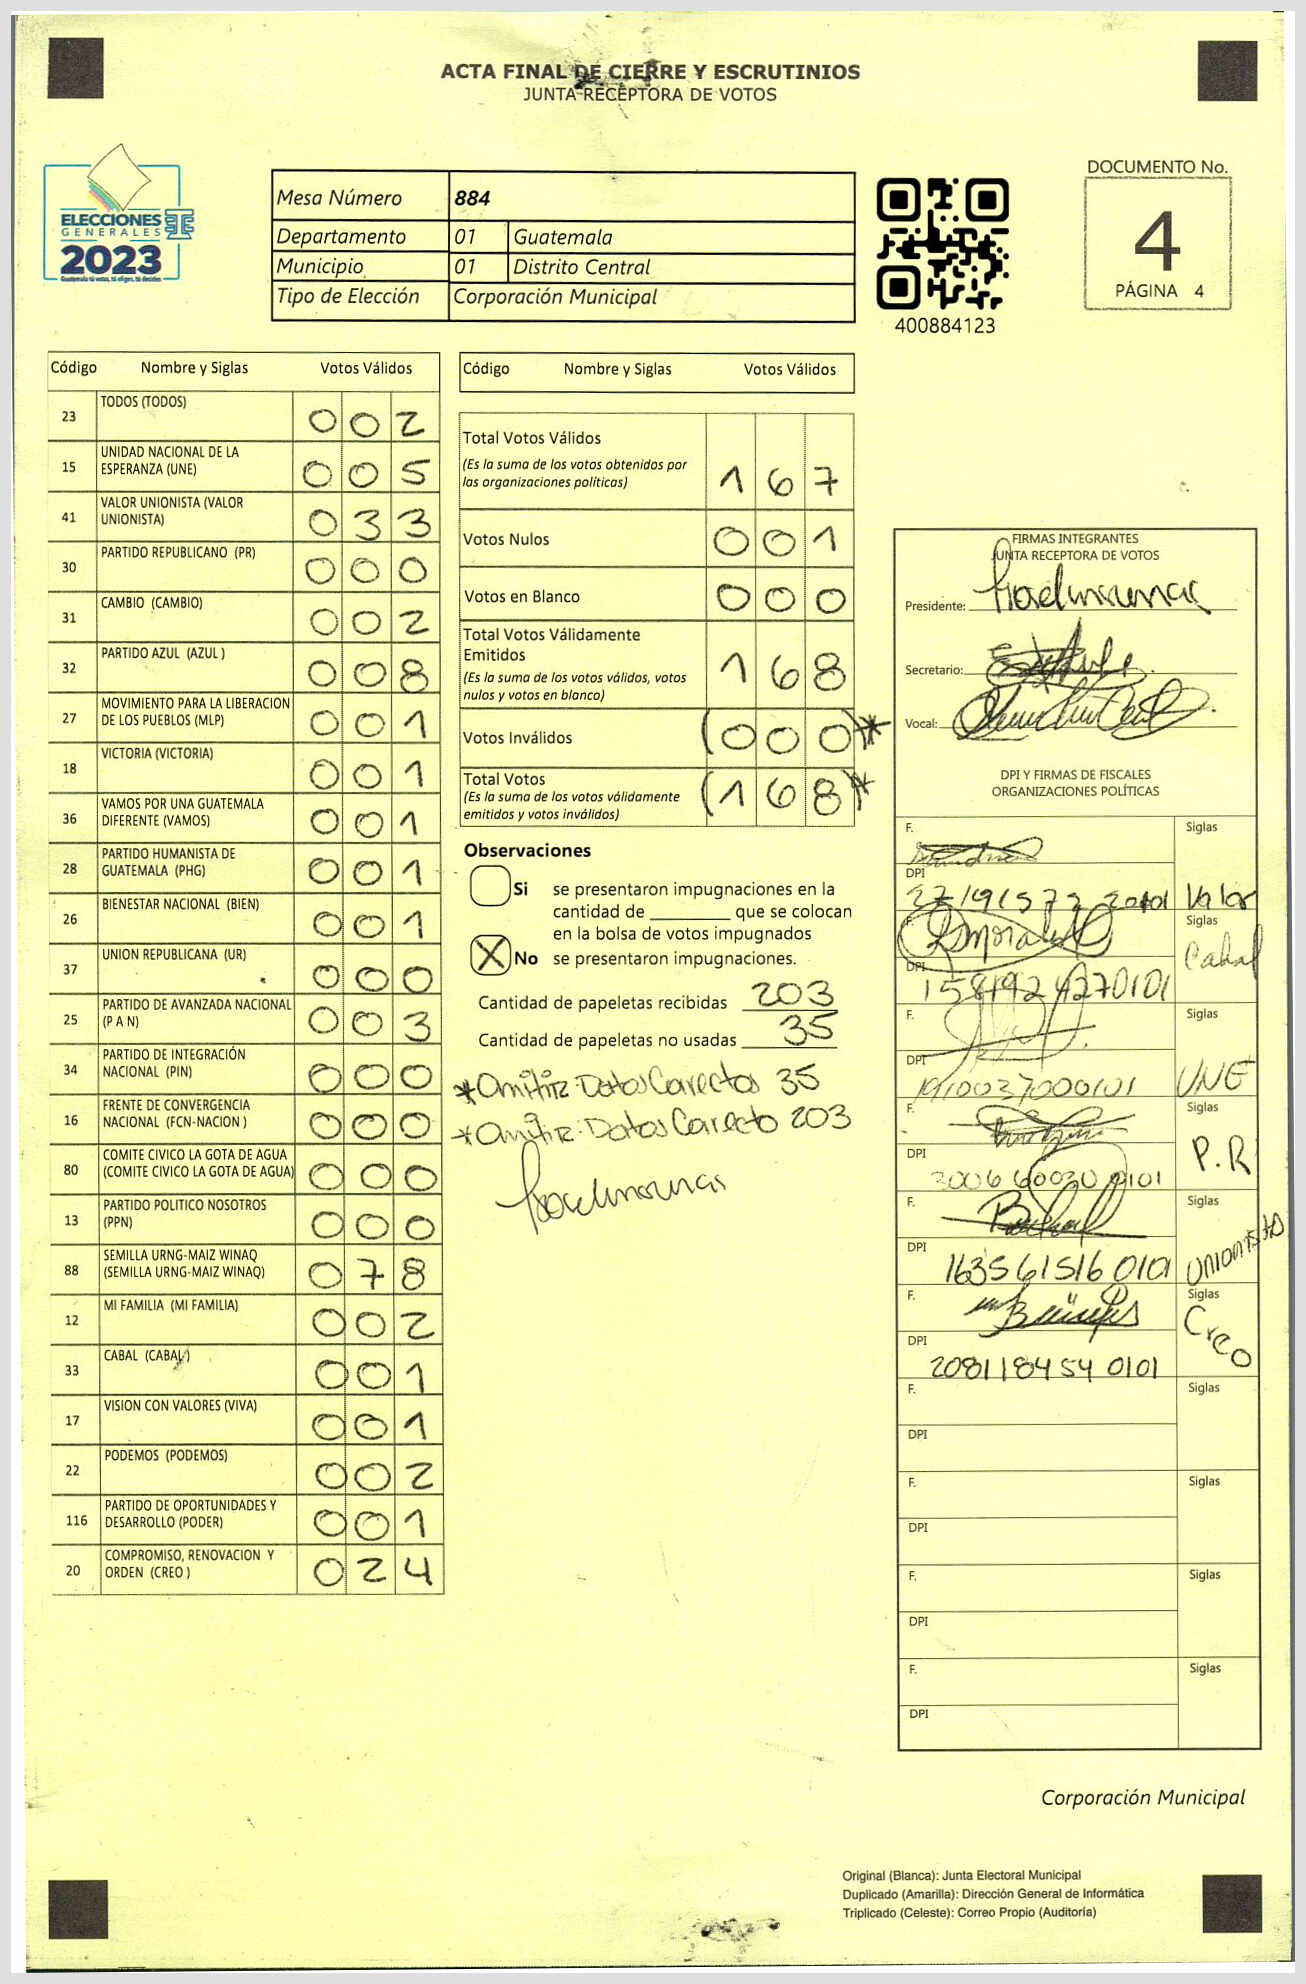 ACTA FINAL DE CIERRE Y ESCRUTINIOS
JUNTA RECEPTORA DE VOTOS
ELECCIONES
GENERALES
2023
Guatemala tú votas, tú eliges, tú decides
Mesa Número 884
Departamento 01 Guatemala
Municipio 01 Distrito Central
Tipo de Elección Corporación Municipal
400884123
DOCUMENTO No.
4
PÁGINA 4
Código Nombre y Siglas Votos Válidos
23 TODOS (TODOS) 002
15 UNIDAD NACIONAL DE LA
ESPERANZA (UNE) 005
41 VALOR UNIONISTA (VALOR
UNIONISTA) 033
30 PARTIDO REPUBLICANO (PR) 000
31 CAMBIO (CAMBIO) 002
32 PARTIDO AZUL (AZUL ) 008
27 MOVIMIENTO PARA LA LIBERACION
DE LOS PUEBLOS (MLP) 001
18 VICTORIA (VICTORIA) 001
36 VAMOS POR UNA GUATEMALA
DIFERENTE (VAMOS) 001
28 PARTIDO HUMANISTA DE
GUATEMALA (PHG) 001
26 BIENESTAR NACIONAL (BIEN) 001
37 UNION REPUBLICANA (UR) 000
25 PARTIDO DE AVANZADA NACIONAL
(P A N) 003
34 PARTIDO DE INTEGRACIÓN
NACIONAL (PIN) 000
16 FRENTE DE CONVERGENCIA
NACIONAL (FCN-NACION ) 000
80 COMITE CIVICO LA GOTA DE AGUA
(COMITE CIVICO LA GOTA DE AGUA) 000
13 PARTIDO POLITICO NOSOTROS
(PPN) 000
88 SEMILLA URNG-MAIZ WINAQ
(SEMILLA URNG-MAIZ WINAQ) 078
12 MI FAMILIA (MI FAMILIA) 002
33 CABAL (CABAL) 001
17 VISION CON VALORES (VIVA) 001
22 PODEMOS (PODEMOS) 002
116 PARTIDO DE OPORTUNIDADES Y
DESARROLLO (PODER) 001
20 COMPROMISO, RENOVACION Y
ORDEN (CREO ) 024
Código Nombre y Siglas Votos Válidos
Total Votos Válidos
(Es la suma de los votos obtenidos por
las organizaciones políticas) 167
Votos Nulos 001
Votos en Blanco 000
Total Votos Válidamente
Emitidos
(Es la suma de los votos válidos, votos
nulos y votos en blanco) 168
Votos Inválidos (000)*
Total Votos
(Es la suma de los votos válidamente
emitidos y votos inválidos) (168)*
Observaciones
Si se presentaron impugnaciones en la
cantidad de ________ que se colocan
en la bolsa de votos impugnados
X No se presentaron impugnaciones.
Cantidad de papeletas recibidas 203
Cantidad de papeletas no usadas 35
*Omitir: Datos Correctos 35
*Omitir: Datos Correcto 203
FIRMAS INTEGRANTES
JUNTA RECEPTORA DE VOTOS
Presidente:
Secretario:
Vocal:
DPI Y FIRMAS DE FISCALES
ORGANIZACIONES POLÍTICAS
F. Siglas
DPI Valor
F. Siglas
DPI 1581924270101 Cabal
F. Siglas
DPI 1910037000101 UNE
F. Siglas
DPI 3006600300101 P.R
F. Siglas
DPI 1635615160101 Unionista
F. Siglas
DPI 2081184540101 Creo
F. Siglas
DPI
F. Siglas
DPI
F. Siglas
DPI
F. Siglas
DPI
Corporación Municipal
Original (Blanca): Junta Electoral Municipal
Duplicado (Amarilla): Dirección General de Informática
Triplicado (Celeste): Correo Propio (Auditoría)